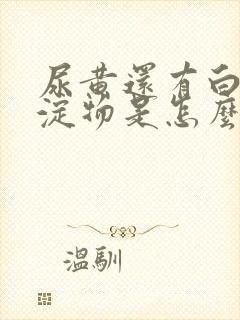 尿黃還有白
淀物是怎麼
溫馴